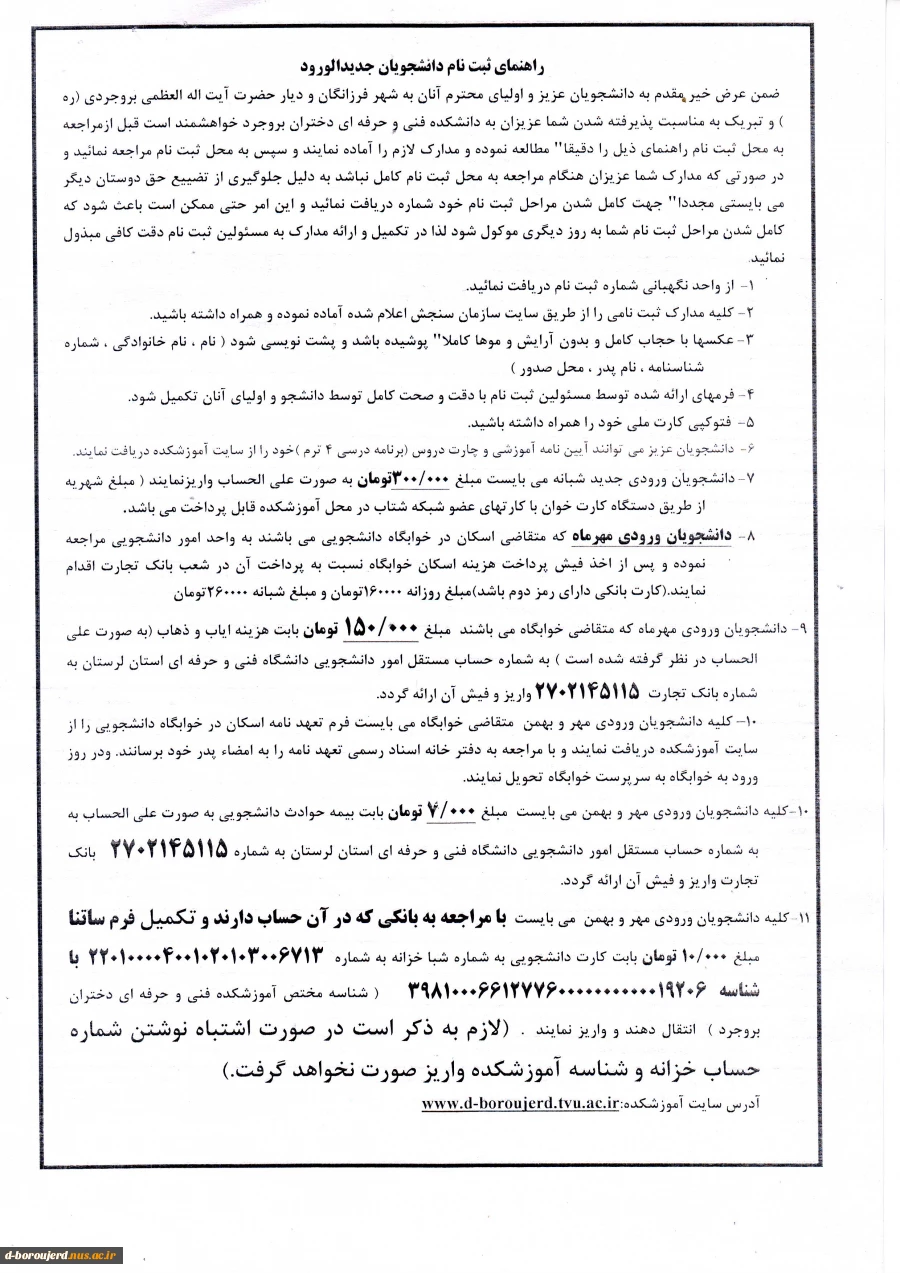 راهنمای ثبت نام دانشجویان جدیدالورود
ضمن عرض خیر مقدم به دانشجویان عزیز و اولیای محترم آنان به شهر فرزانگان و دیار حضرت آیت اله العظمی بروجردی (ره
) و تبریک به مناسبت پذیرفته شدن شما عزیزان به دانشکده فنی و حرفه ای دختران بروجرد خواهشمند است قبل ازمراجعه
به محل ثبت نام راهنمای ذیل را دقیقا" مطالعه نموده و مدارک لازم را آماده نمایند و سپس به محل ثبت نام مراجعه نمائید و
در صورتی که مدارک شما عزیزان هنگام مراجعه به محل ثبت نام کامل نباشد به دلیل جلوگیری از تضییع حق دوستان دیگر
می بایستی مجددا" جهت کامل شدن مراحل ثبت نام خود شماره دریافت نمائید و این امر حتی ممکن است باعث شود که
کامل شدن مراحل ثبت نام شما به روز دیگری موکول شود لذا در تکمیل و ارائه مدارک به مسئولین ثبت نام دقت کافی مبذول
نمائید.
۱- از واحد نگهبانی شماره ثبت نام دریافت نمائید.
۲- کلیه مدارک ثبت نامی را از طریق سایت سازمان سنجش اعلام شده آماده نموده و همراه داشته باشید.
۳- عکسها با حجاب کامل و بدون آرایش و موها کاملا" پوشیده باشد و پشت نویسی شود ( نام ، نام خانوادگی ، شماره
شناسنامه ، نام پدر ، محل صدور )
۴- فرمهای ارائه شده توسط مسئولین ثبت نام با دقت و صحت کامل توسط دانشجو و اولیای آنان تکمیل شود.
۵- فتوکپی کارت ملی خود را همراه داشته باشید.
۶- دانشجویان عزیز می توانند آیین نامه آموزشی و چارت دروس (برنامه درسی ۴ ترم )خود را از سایت آموزشکده دریافت نمایند.
۷- دانشجویان ورودی جدید شبانه می بایست مبلغ ۳۰۰/۰۰۰تومان به صورت علی الحساب واریزنمایند ( مبلغ شهریه
از طریق دستگاه کارت خوان با کارتهای عضو شبکه شتاب در محل آموزشکده قابل پرداخت می باشد.
۸- دانشجویان ورودی مهرماه که متقاضی اسکان در خوابگاه دانشجویی می باشند به واحد امور دانشجویی مراجعه
نموده و پس از اخذ فیش پرداخت هزینه اسکان خوابگاه نسبت به پرداخت آن در شعب بانک تجارت اقدام
نمایند.(کارت بانکی دارای رمز دوم باشد)مبلغ روزانه ۱۶۰۰۰۰تومان و مبلغ شبانه ۲۶۰۰۰۰تومان
۹- دانشجویان ورودی مهرماه که متقاضی خوابگاه می باشند مبلغ ۱۵۰/۰۰۰ تومان بابت هزینه ایاب و ذهاب (به صورت علی
الحساب در نظر گرفته شده است ) به شماره حساب مستقل امور دانشجویی دانشگاه فنی و حرفه ای استان لرستان به
شماره بانک تجارت ۲۷۰۲۱۴۵۱۱۵ واریز و فیش آن ارائه گردد.
۱۰- کلیه دانشجویان ورودی مهر و بهمن متقاضی خوابگاه می بایست فرم تعهد نامه اسکان در خوابگاه دانشجویی را از
سایت آموزشکده دریافت نمایند و با مراجعه به دفتر خانه اسناد رسمی تعهد نامه را به امضاء پدر خود برسانند. ودر روز
ورود به خوابگاه به سرپرست خوابگاه تحویل نمایند.
۱۰-کلیه دانشجویان ورودی مهر و بهمن می بایست مبلغ ۷/۰۰۰ تومان بابت بیمه حوادث دانشجویی به صورت علی الحساب به
به شماره حساب مستقل امور دانشجویی دانشگاه فنی و حرفه ای استان لرستان به شماره ۲۷۰۲۱۴۵۱۱۵ بانک
تجارت واریز و فیش آن ارائه گردد.
۱۱-کلیه دانشجویان ورودی مهر و بهمن می بایست با مراجعه به بانکی که در آن حساب دارند و تکمیل فرم ساتنا
مبلغ ۱۰/۰۰۰ تومان بابت کارت دانشجویی به شماره شبا خزانه به شماره ۲۲۰۱۰۰۰۰۴۰۰۱۰۲۰۱۰۳۰۰۶۷۱۳ با
شناسه ۳۹۸۱۰۰۰۶۶۱۲۷۷۶۰۰۰۰۰۰۰۰۰۰۰۰۱۹۲۰۶ ( شناسه مختص آموزشکده فنی و حرفه ای دختران
بروجرد ) انتقال دهند و واریز نمایند . (لازم به ذکر است در صورت اشتباه نوشتن شماره
حساب خزانه و شناسه آموزشکده واریز صورت نخواهد گرفت.)
آدرس سایت آموزشکده:www.d-boroujerd.tvu.ac.ir
d-boroujerd.nus.ac.ir